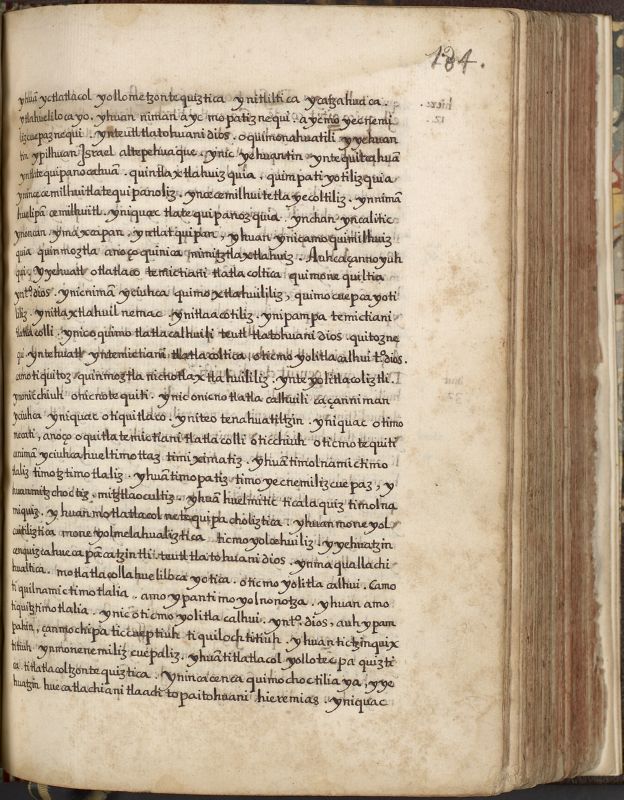 184.
yhuã yctlatlàcol yollometzontequiztica ynitliltica ycatzahuaca.
ytlahueliloca yo. yhuan niman ayc mopatiznequi. aycmo yecnemi
lizcuepaznequi. ynteutl tlatohuani dios. oquimonahuatili yyehuan
tin ypilhuan Israel altepehuaque. ynic yehuantin yntequitcahuã
yntlatequipanocahuã. quintlaxtlahuizquia. quimpatiyotilizquia
ynincecemilhuitlatequipanoliz. yncecemilhuitetlayecoltiliz. ynnimã
huelipã cemilhuitl. yniquac tlatequipanozquia. ynchan yncalitic
ynoncan ymaxcapan, yntlatquipan, yhuan ynicamo quimilhuiz
quia quinmoztla anoço quinica mimitztlaxtlahuiz. Auhcaçannoyuh
qui, yyehuatl otlatlaco temictiani tlatlacoltica quimonequiltia
ynt.º dios. ynicnimã yciuhca quimoxtlahuililiz, quimocuepcayoti
liliz. ynitlaxtlahuil nemac. ynitlacotiliz. ynipampa temictiani
tlatlacolli. ynicoquimotlatlacalhuili teutl tlatohuani dios. quitozne
qui. yntehuatl yntemictiani tlatlacoltica. oticmoyolitlacalhui t.º dios.
camo tiquitoz quinmoztla nicnotlaxtlahuililiz. ynteyolitlacoliztli.
ynonicchiuh onicnotequiti. ynic onicnotlatlacalhuili caçanniman
yciuhca yniquac otiquitlaco. yniteotenahuatiltzin. yniquac otimo
mecati, anoço oquitla temictiani tlatlacolli oticchiuh oticmotequiti
animã yciuhca hueltimottaz timiximatiz. yhuã timolnamictimo
tlaliz timotztimotlaliz. yhuã timopatiz timoyecnemilizcuepaz, y
huanmitzchoctiz, mitztlaocultiz. yhuã huelmitic ticalaquiz timolna
miquiz. yhuan motlatlacol netequipacholiztica. yhuan moneyol
cuitiliztica moneyolmelahualiztica ticmoyolcehuiliz. yyehuatzin
cenquizcahuecapãcatzintli teutl tlatohuani dios. ynima quallachi
hualtica. motlatlacollahuelilocayotica. oticmoyolitlacalhui. Camo
tiquilnamictimotlalia. amo ypan timoyolnonotza. yhuan amo
tiquitztimotlalia. ynic oticmoyolitlacalhui. ynt.º dios, auh ypam
pahin, çanmochipa ticcueptiuh tiquilochtitiuh. yhuan tictzinquix
titiuh ynmonenemilizcuepaliz. yhuã titlatlacolyollotecpaquizti
ca titlatlacoltzontequiztica. ynin cacenca quimochoctiliaya, yye
huatzin huecatlachiani tlaaditopaitohuani hieremias. yniquac
hier.
12.